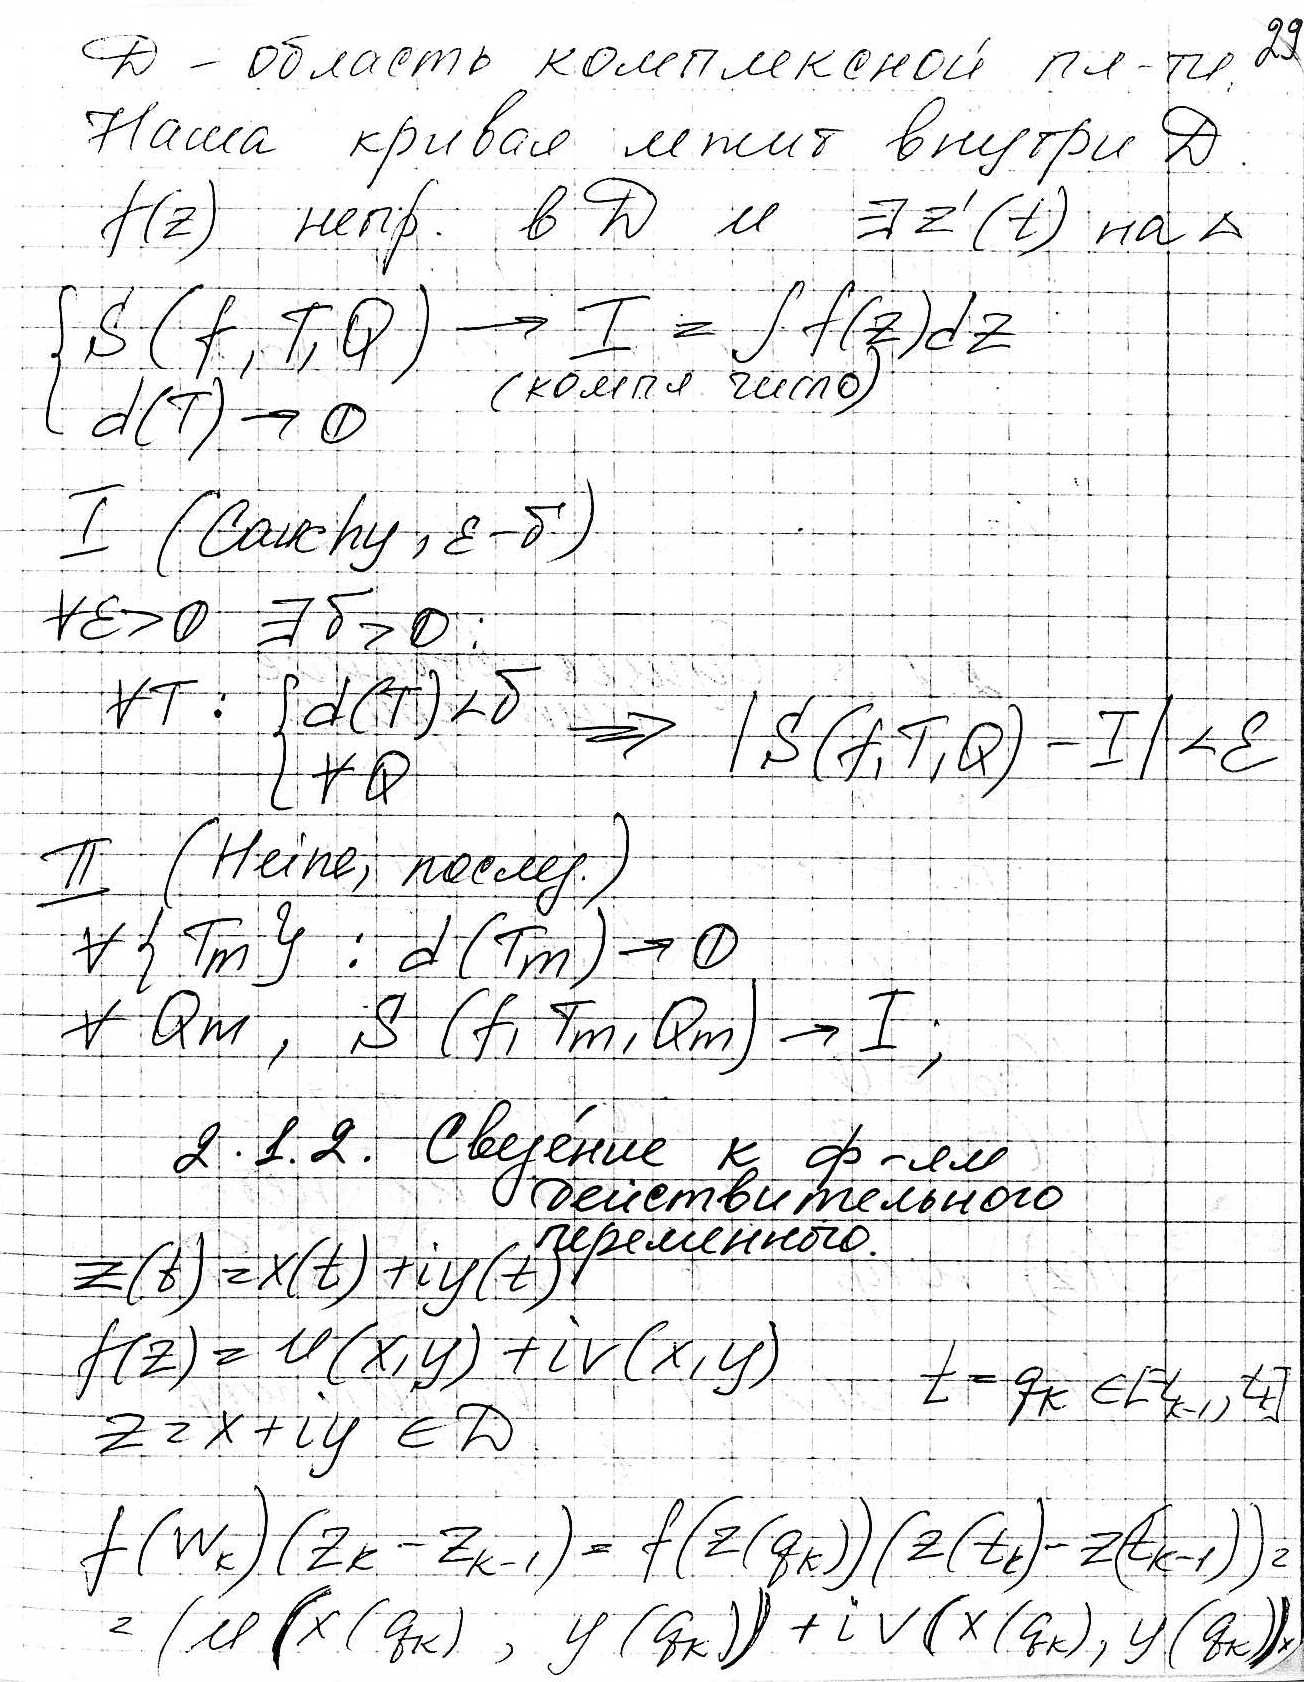 29
D - область комплексной пл-ти.
Наша кривая лежит внутри D.
f(z) непр. в D и ∃ z'(t) на Δ
{ S(f, T, Q) → I = ∫ f(z)dz
(компл число)
d(T) → 0
I (Cauchy, ε-δ)
∀ε>0 ∃δ>0:
∀T: { d(T)<δ ⇒ |S(f,T,Q) - I| < ε
∀Q
II (Heine, послед.)
∀{Tm}: d(Tm) → 0
∀ Qm, S(f, Tm, Qm) → I;
2.1.2. Сведе́ние к ф-ям
действительного
переменного.
z(t)=x(t)+iy(t)
f(z)=u(x,y)+iv(x,y)
t=qk ∈[tk-1, tk]
z=x+iy ∈D
f(wk)(zk-zk-1)=f(z(qk))(z(tk)-z(tk-1))=
=(u(x(qk), y(qk))+iv(x(qk),y(qk)))×